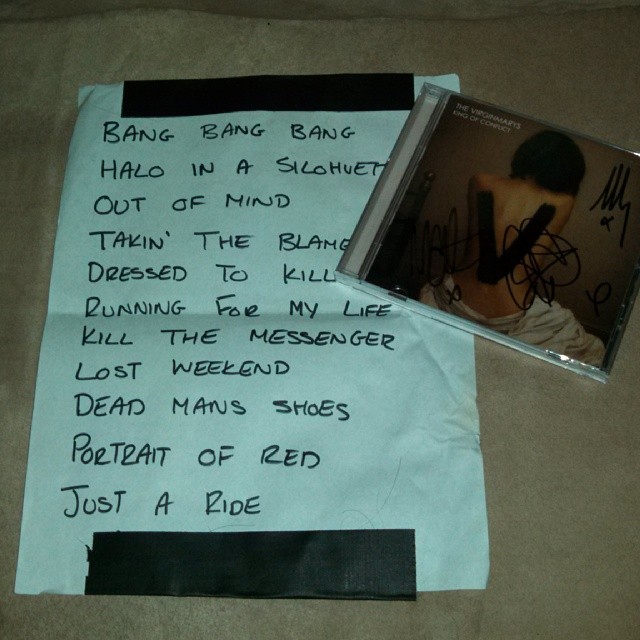 BANG BANG BANG
HALO IN A SILOHUET
OUT OF MIND
TAKIN' THE BLAME
DRESSED TO KILL
RUNNING FOR MY LIFE
KILL THE MESSENGER
LOST WEEKEND
DEAD MANS SHOES
PORTRAIT OF RED
JUST A RIDE
THE VIRGINMARYS
KING OF CONFLICT